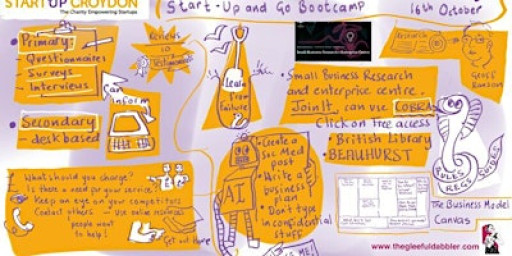 STARTUP CROYDON
The Charity Empowering Startups
Start-Up and Go Bootcamp
16th October
• Primary:
- Questionnaires
- Surveys
- Interviews
Can
Inform
• Secondary
- desk based
Reviews
Testimonials
Learn
from
failure
• Small Business Research
and enterprise centre.
Join It, can use COBRA
Click on free access
• British Library
• BEAUHURST
Research
Geoff
RULES
REGS
GUIDES
AI
• Create a
Soc Med
post
• Write a
business
plan
• Don't type
in confidential
stuff
ME!
What should you charge?
Is there a need for your service?
Keep an eye on your competitors
Contact others - Use online resources
people want
to help!
Get out there
The Business Model
Canvas
www.thegleefuldabbler.com